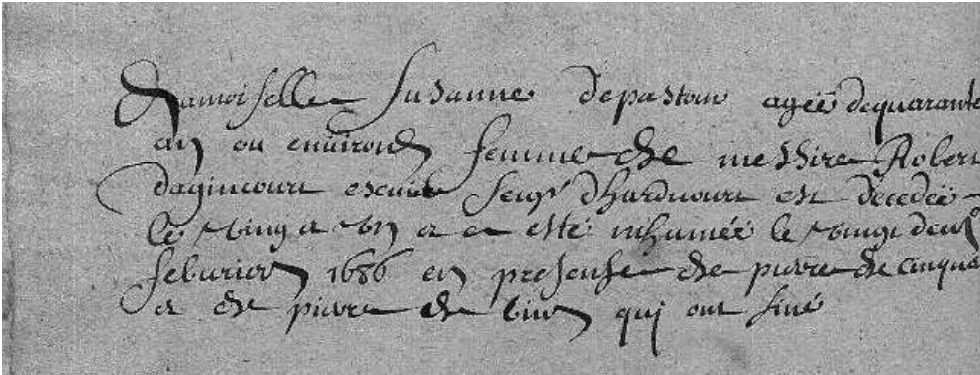 Damoiselle Susanne depastour agéé dequarante
an ou environ femme de messire Rober
dagincourt escuié seigr dhardicourt est décedéé
le vingt et un et a esté inhumée le vingt deux
feburier 1686 en presense de pierre de cinque
et de pierre de qui ont siné